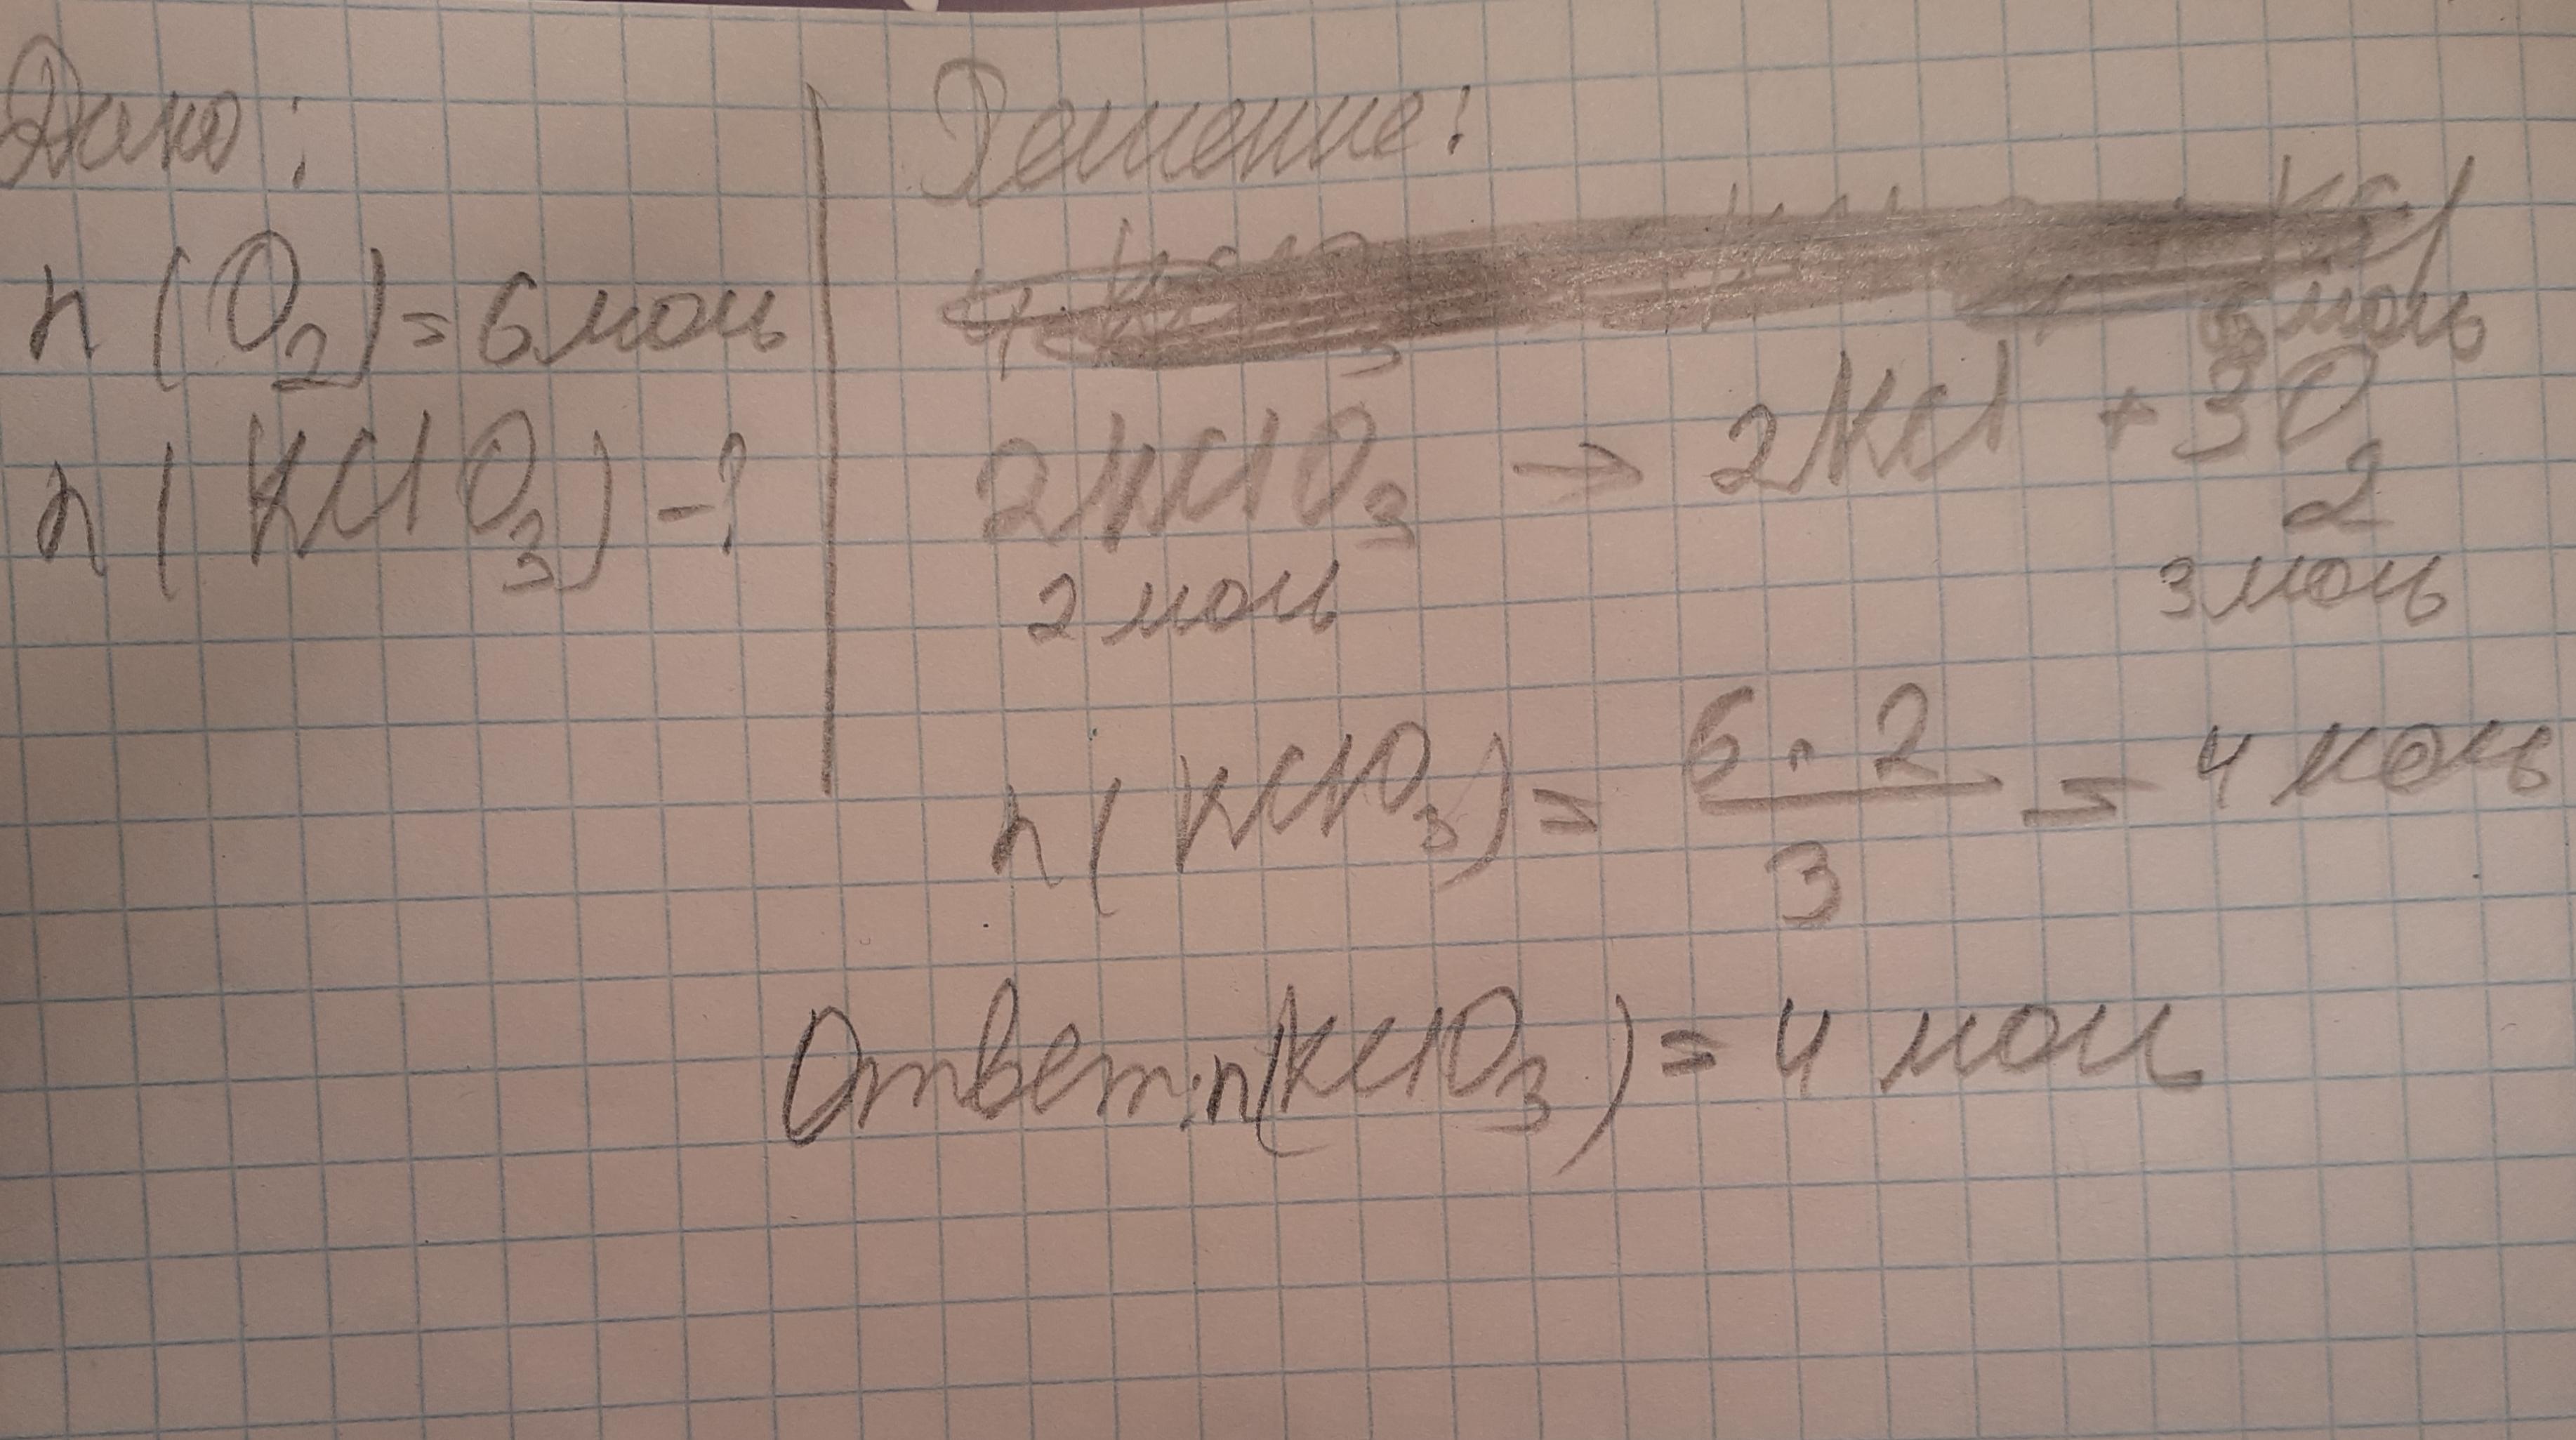 Дано:
n(O2)=6 моль
n(KClO3)-?
Решение:
6 моль
2KClO3 → 2KCl + 3O2
2 моль 3 моль
n(KClO3) = 6·2/3 = 4 моль
Ответ: n(KClO3) = 4 моль